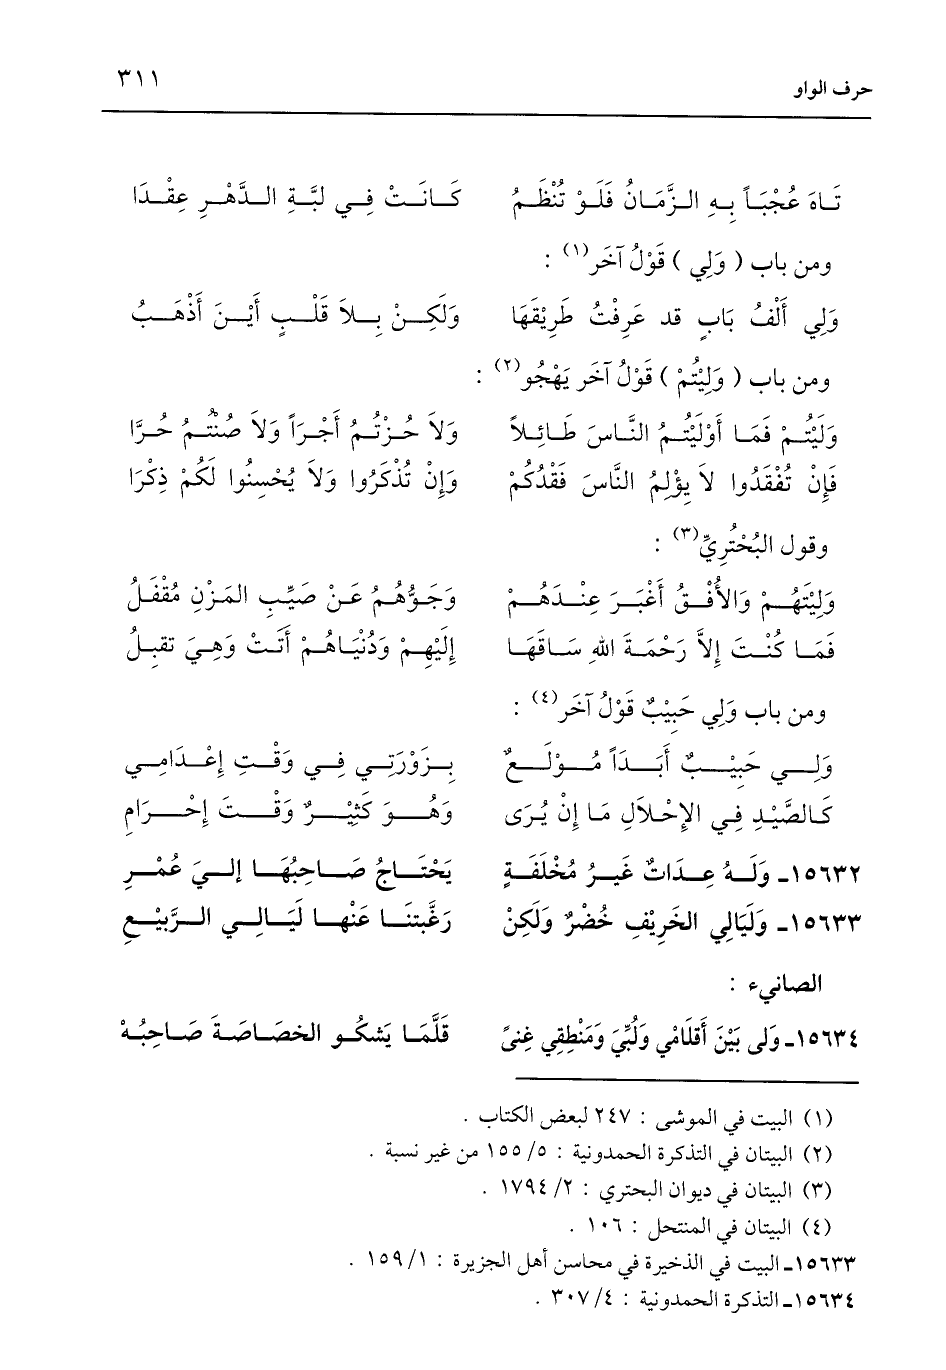 حرف الواو ٣١١
تَاهَ عُجْبَاً بِهِ الزَّمَانُ فَلَوْ تُنْظَمُ كَانَتْ فِي لبَّةِ الدَّهْرِ عِقْدَا
ومن باب ( وَلِي ) قَوْلُ آخَر(١) :
وَلِي أَلْفُ بَابٍ قد عَرِفْتُ طَرِيْقَهَا وَلَكِنْ بِلاَ قَلْبٍ أَيْنَ أَذْهَبُ
ومن باب ( وَلِيْتُمْ ) قَوْلُ آخَر يَهْجُو(٢) :
وَلَيْتُمْ فَمَا أَوْلَيْتُمُ النَّاسَ طَائِلاً وَلاَ حُزْتُمُ أَجْرَاً وَلاَ صُنْتُمُ حُرَّا
فَإِنْ تُفْقَدُوا لاَ يؤْلِمُ النَّاسَ فَقْدُكُمْ وَإِنْ تُذْكَرُوا وَلاَ يُحْسِنُوا لَكُمْ ذِكْرَا
وقول البُحْتُرِيِّ(٣) :
وَلِيْتَهُمْ وَالأُفْقُ أَغْبَرَ عِنْدَهُمْ وَجَوُّهُمُ عَنْ صَيِّبِ المَزْنِ مُقْفَلُ
فَمَا كُنْتَ إِلاَّ رَحْمَةَ اللهِ سَاقَهَا إِلَيْهِمْ وَدُنْيَاهُمْ أَتَتْ وَهِيَ تقبِلُ
ومن باب وَلِي حَبِيْبٌ قَوْلُ آخَر(٤) :
وَلِي حَبِيْبٌ أَبَدَاً مُوْلَعٌ بِزَوْرَتِي فِي وَقْتِ إِعْدَامِي
كَالصَّيْدِ فِي الإِحْلاَلِ مَا إِنْ يُرَى وَهُوَ كَثِيْرٌ وَقْتَ إِحْرَامِ
١٥٦٣٢ـ وَلَهُ عِدَاتٌ غَيرُ مُخْلَفَةٍ يَحْتَاجُ صَاحِبُهَا إلىَ عُمْرِ
١٥٦٣٣ـ وَلَيَالِي الخَرِيْفِ خُضْرٌ وَلَكِنْ رَغَّبتنَا عَنْهَا لَيَالِي الرَّبِيْعِ
الصانيء :
١٥٦٣٤ـ وَلى بَيْنَ أَقلَامْي وَلُبِّيَ وَمَنْطِقِي غِنىً قَلَّمَا يَشكُو الخصَاصَةَ صَاحِبُهْ
(١) البيت في الموشى : ٢٤٧ لبعض الكتاب .
(٢) البيتان في التذكرة الحمدونية : ٥/ ١٥٥ من غير نسبة .
(٣) البيتان في ديوان البحتري : ٢/ ١٧٩٤ .
(٤) البيتان في المنتحل : ١٠٦ .
١٥٦٣٣ـ البيت في الذخيرة في محاسن أهل الجزيرة : ١/ ١٥٩ .
١٥٦٣٤ـ التذكرة الحمدونية : ٤/ ٣٠٧ .